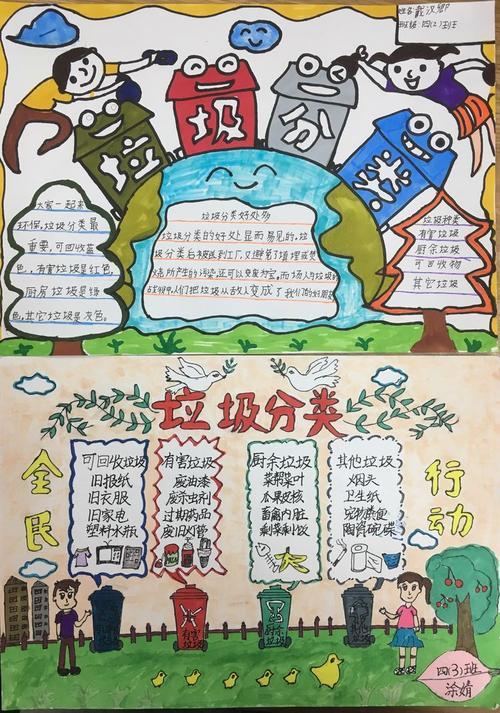 姓名:戴汉卿
班级:四(2)班
垃圾分类
大家一起来
环保,垃圾分类最
重要,可回收蓝
色,有害垃圾是红色,
厨房垃圾是绿
色,其它垃圾是灰色。
垃圾分类好处多
垃圾分类的好处显而易见的。垃
圾分类后被送到工厂,又避免了填埋或焚
烧所产生的污染,还可以变废为宝。而场人与垃圾的
战役中,人们把垃圾从敌人变成了我们的好朋友
垃圾种类
有害垃圾
厨余垃圾
可回收物
其它垃圾
垃圾分类
全民
行动
可回收垃圾
旧报纸
旧衣服
旧家电
塑料水瓶
有害垃圾
废油漆
废杀虫剂
过期药品
废旧灯管
厨余垃圾
菜帮菜叶
瓜果皮核
畜禽内脏
剩菜剩饭
其他垃圾
烟头
卫生纸
宠物粪便
陶瓷碗碟
有害
垃圾
厨余
垃圾
四(3)班
涂婧